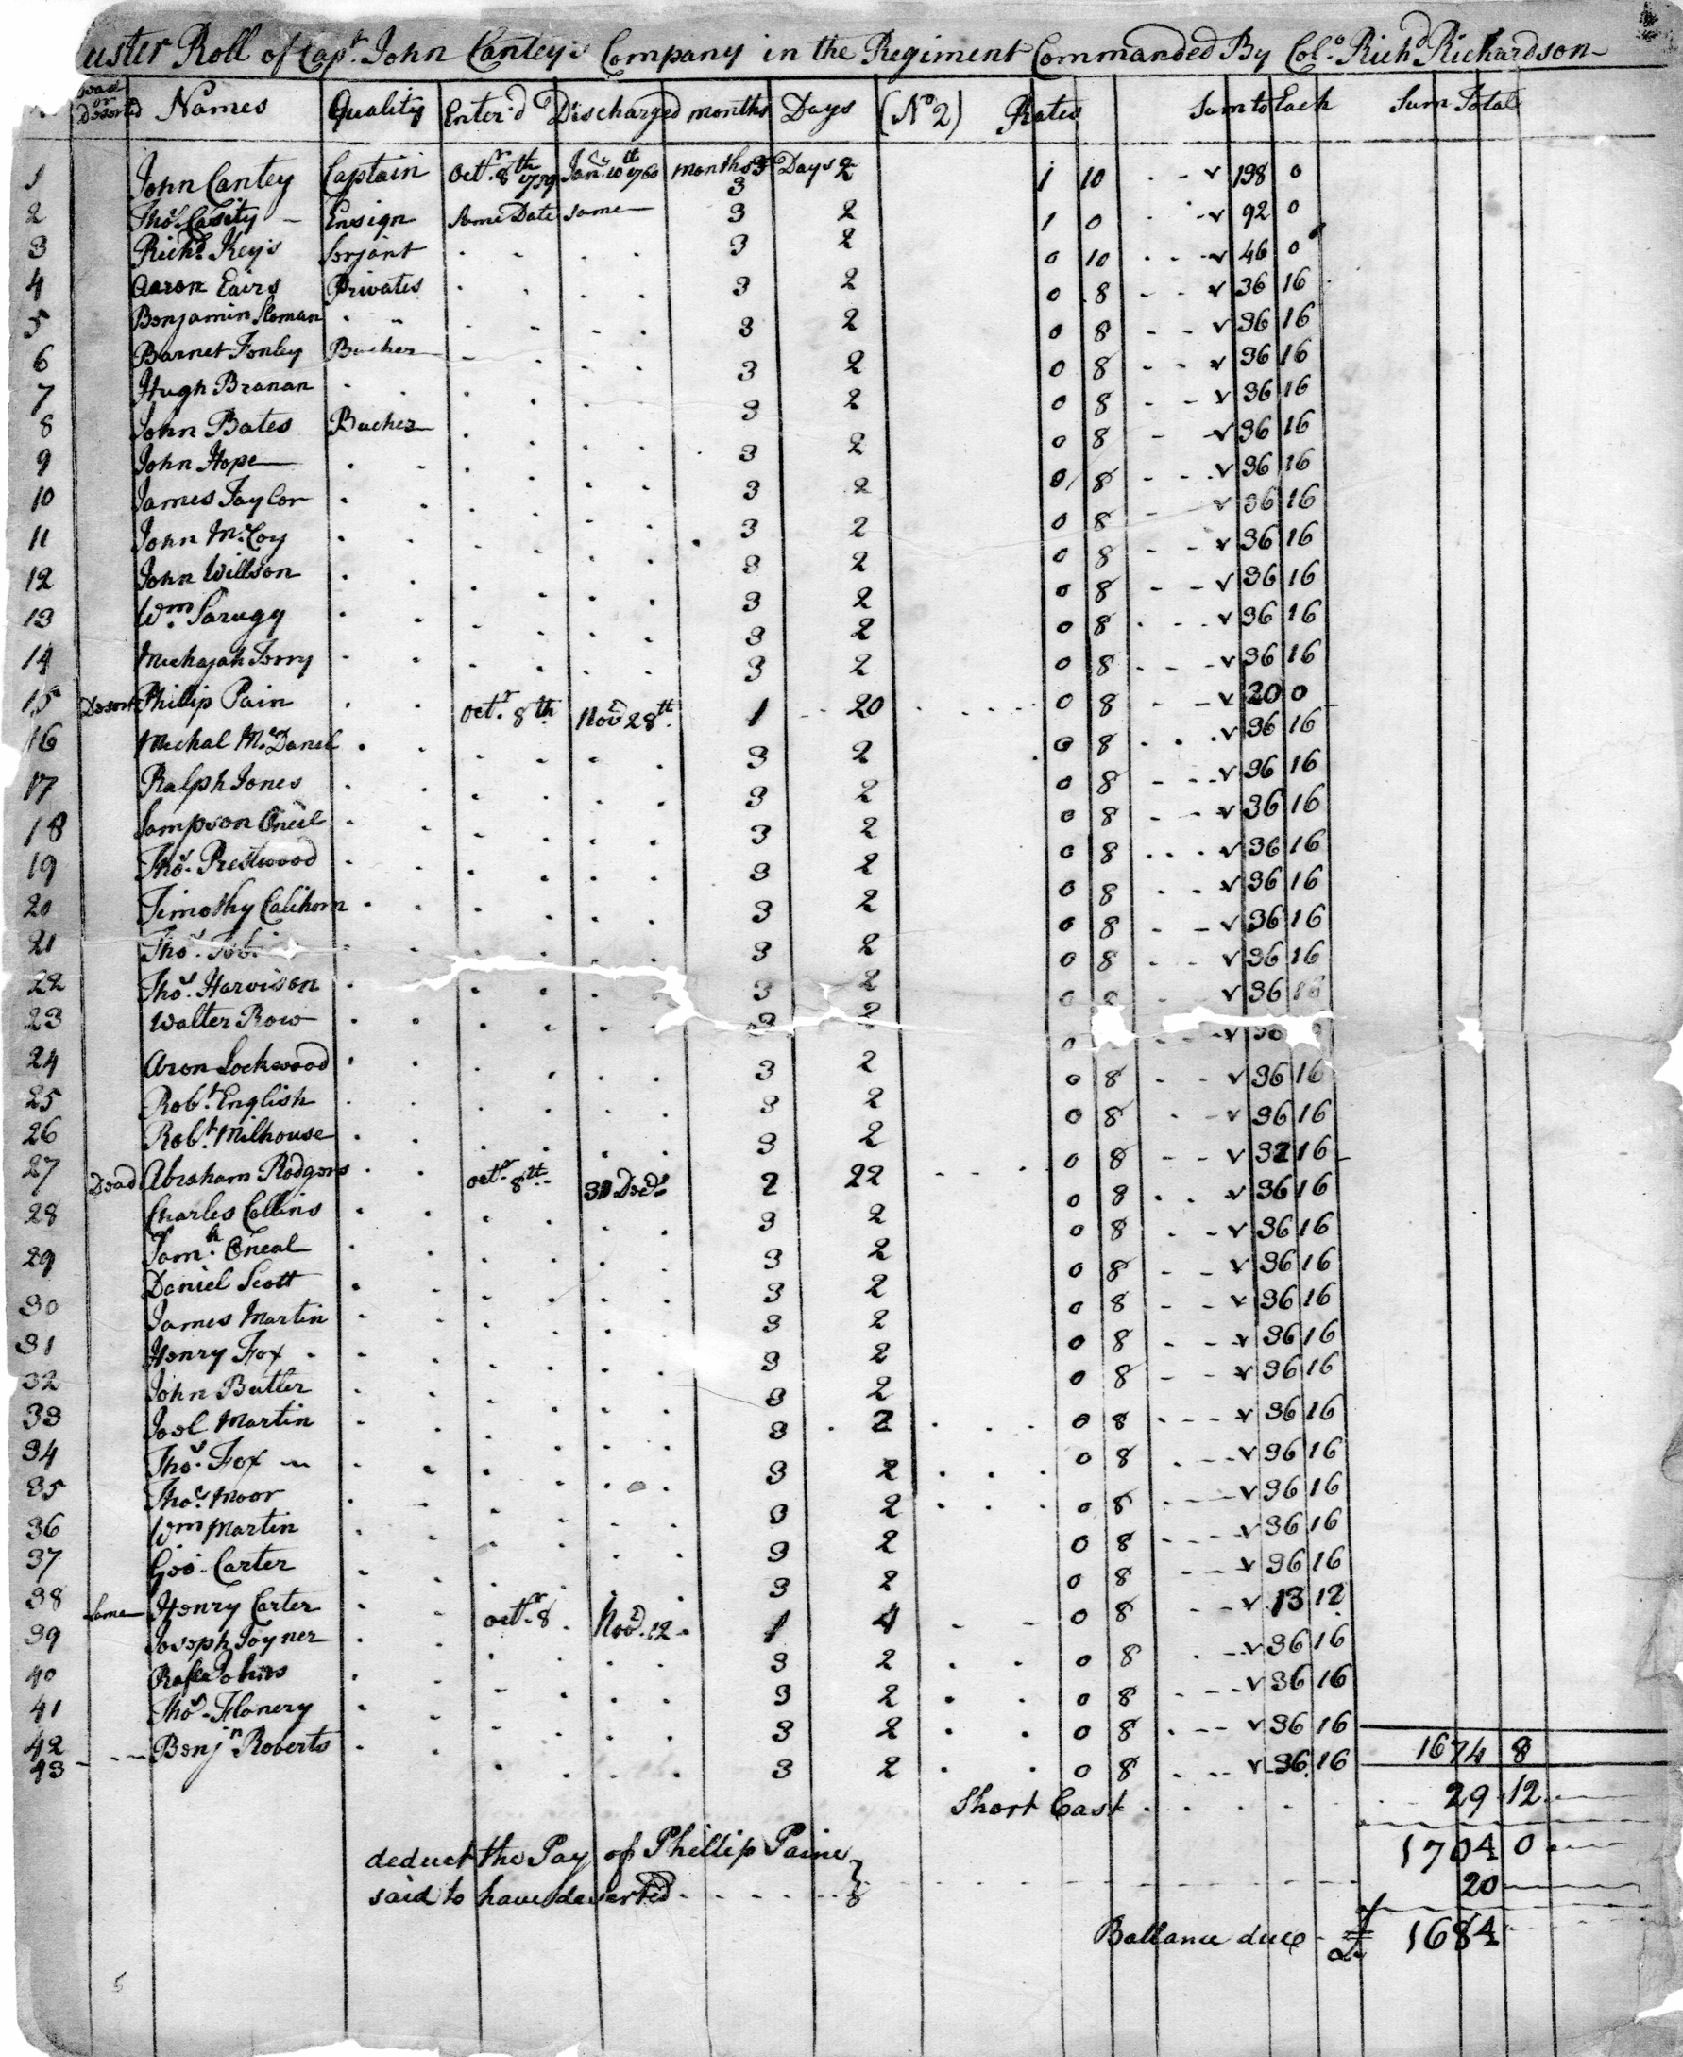 uster Roll of Capt. John Cantey's Company in the Regiment Commanded By Colo. Richd Richardson
Dead or Deserted Names Quality Enter'd Discharged months Days (No 2) Rates Sum to Each Sum Total
1 John Cantey Captain Octr. 8th 1759 Janr. 10th 1760 months 3 Days 2 1 10 198 0
2 Thos. Casity Ensign Same Date same 3 2 1 0 92 0
3 Richd. Keys Serjant 3 2 0 10 46 0
4 Aaron Eairs Privates 3 2 0 8 36 16
5 Benjamin Sloman 3 2 0 8 36 16
6 Barnet Fonley 3 2 0 8 36 16
7 Hugh Branan 3 2 0 8 36 16
8 John Bates 3 2 0 8 36 16
9 John Hope 3 2 0 8 36 16
10 James Taylor 3 2 0 8 36 16
11 John McCoy 3 2 0 8 36 16
12 John Willson 3 2 0 8 36 16
13 Wm. Sarugy 3 2 0 8 36 16
14 Michajah Torry 3 2 0 8 36 16
15 Desert Phillip Pain Octr. 8th Novr 28th 1 20 0 8 20 0
16 Michal McDanel 3 2 0 8 36 16
17 Ralph Jones 3 2 0 8 36 16
18 Sampson Oneil 3 2 0 8 36 16
19 Thos. Prestwood 3 2 0 8 36 16
20 Timothy Calihorn 3 2 0 8 36 16
21 Thos. 3 2 0 8 36 16
22 Thos. Harvison 3 2 0 8 36
23 Walter Row 3 2 0
24 Aron Lockwood 3 2 0 8 36 16
25 Robt. English 3 2 0 8 36 16
26 Robt. Milhouse 3 2 0 8 32 16
27 Dead Abraham Rodgers octr. 8th 2 22 0 8 36 16
28 Charles Collins 3 2 0 8 36 16
29 Saml. Oneal 3 2 0 8 36 16
Daniel Scott 3 2 0 8 36 16
30 James Martin 3 2 0 8 36 16
31 Henry Fox 3 2 0 8 36 16
32 John Butler 3 2 0 8 36 16
33 Joel Martin 3 2 0 8 36 16
34 Thos. Fox 3 2 0 8 36 16
35 Thos. Moor 3 2 0 8 36 16
36 Wm Martin 3 2 0 8 36 16
37 Geo. Carter 3 2 0 8 13 12
38 Same Henry Carter octr. 8 Novr. 12 1 4 0 8 36 16
39 Joseph Joyner 3 2 0 8 36 16
40 3 2 0 8 36 16
41 Thos. Flanery 3 2 0 8 36 16
42 Benjn Roberts 3 2
43
1674 8
Short Cast 29 12
1704 0
deduct the Pay of Phillip Paine
said to have deserted 20
Ballance due £ 1684
5